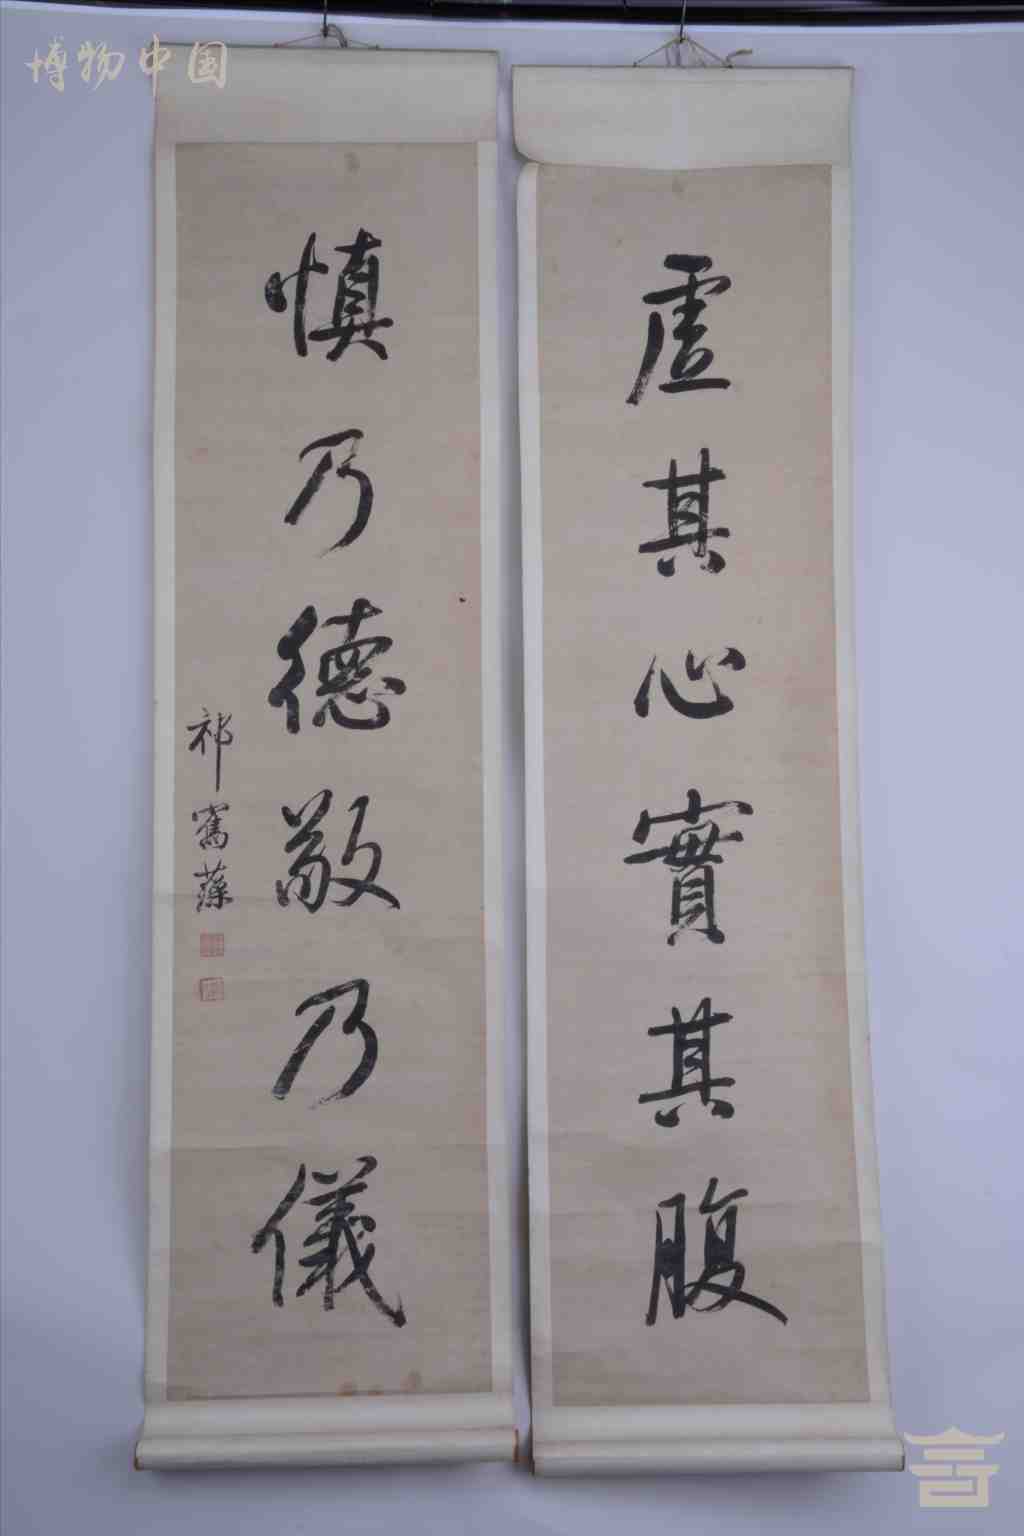 博物中国
虛其心實其腹
慎乃德敬乃儀
祁寯藻